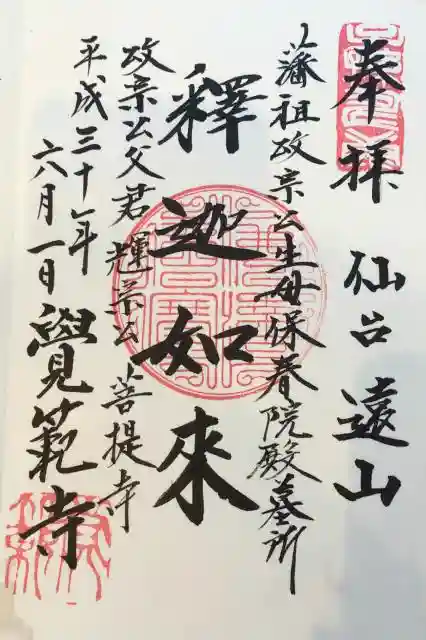 奉拝 仙台 遠山
藩祖政宗公生母保春院殿墓所
釋迦如來
政宗公父君輝宗公菩提寺
平成三十年六月一日
覺範寺